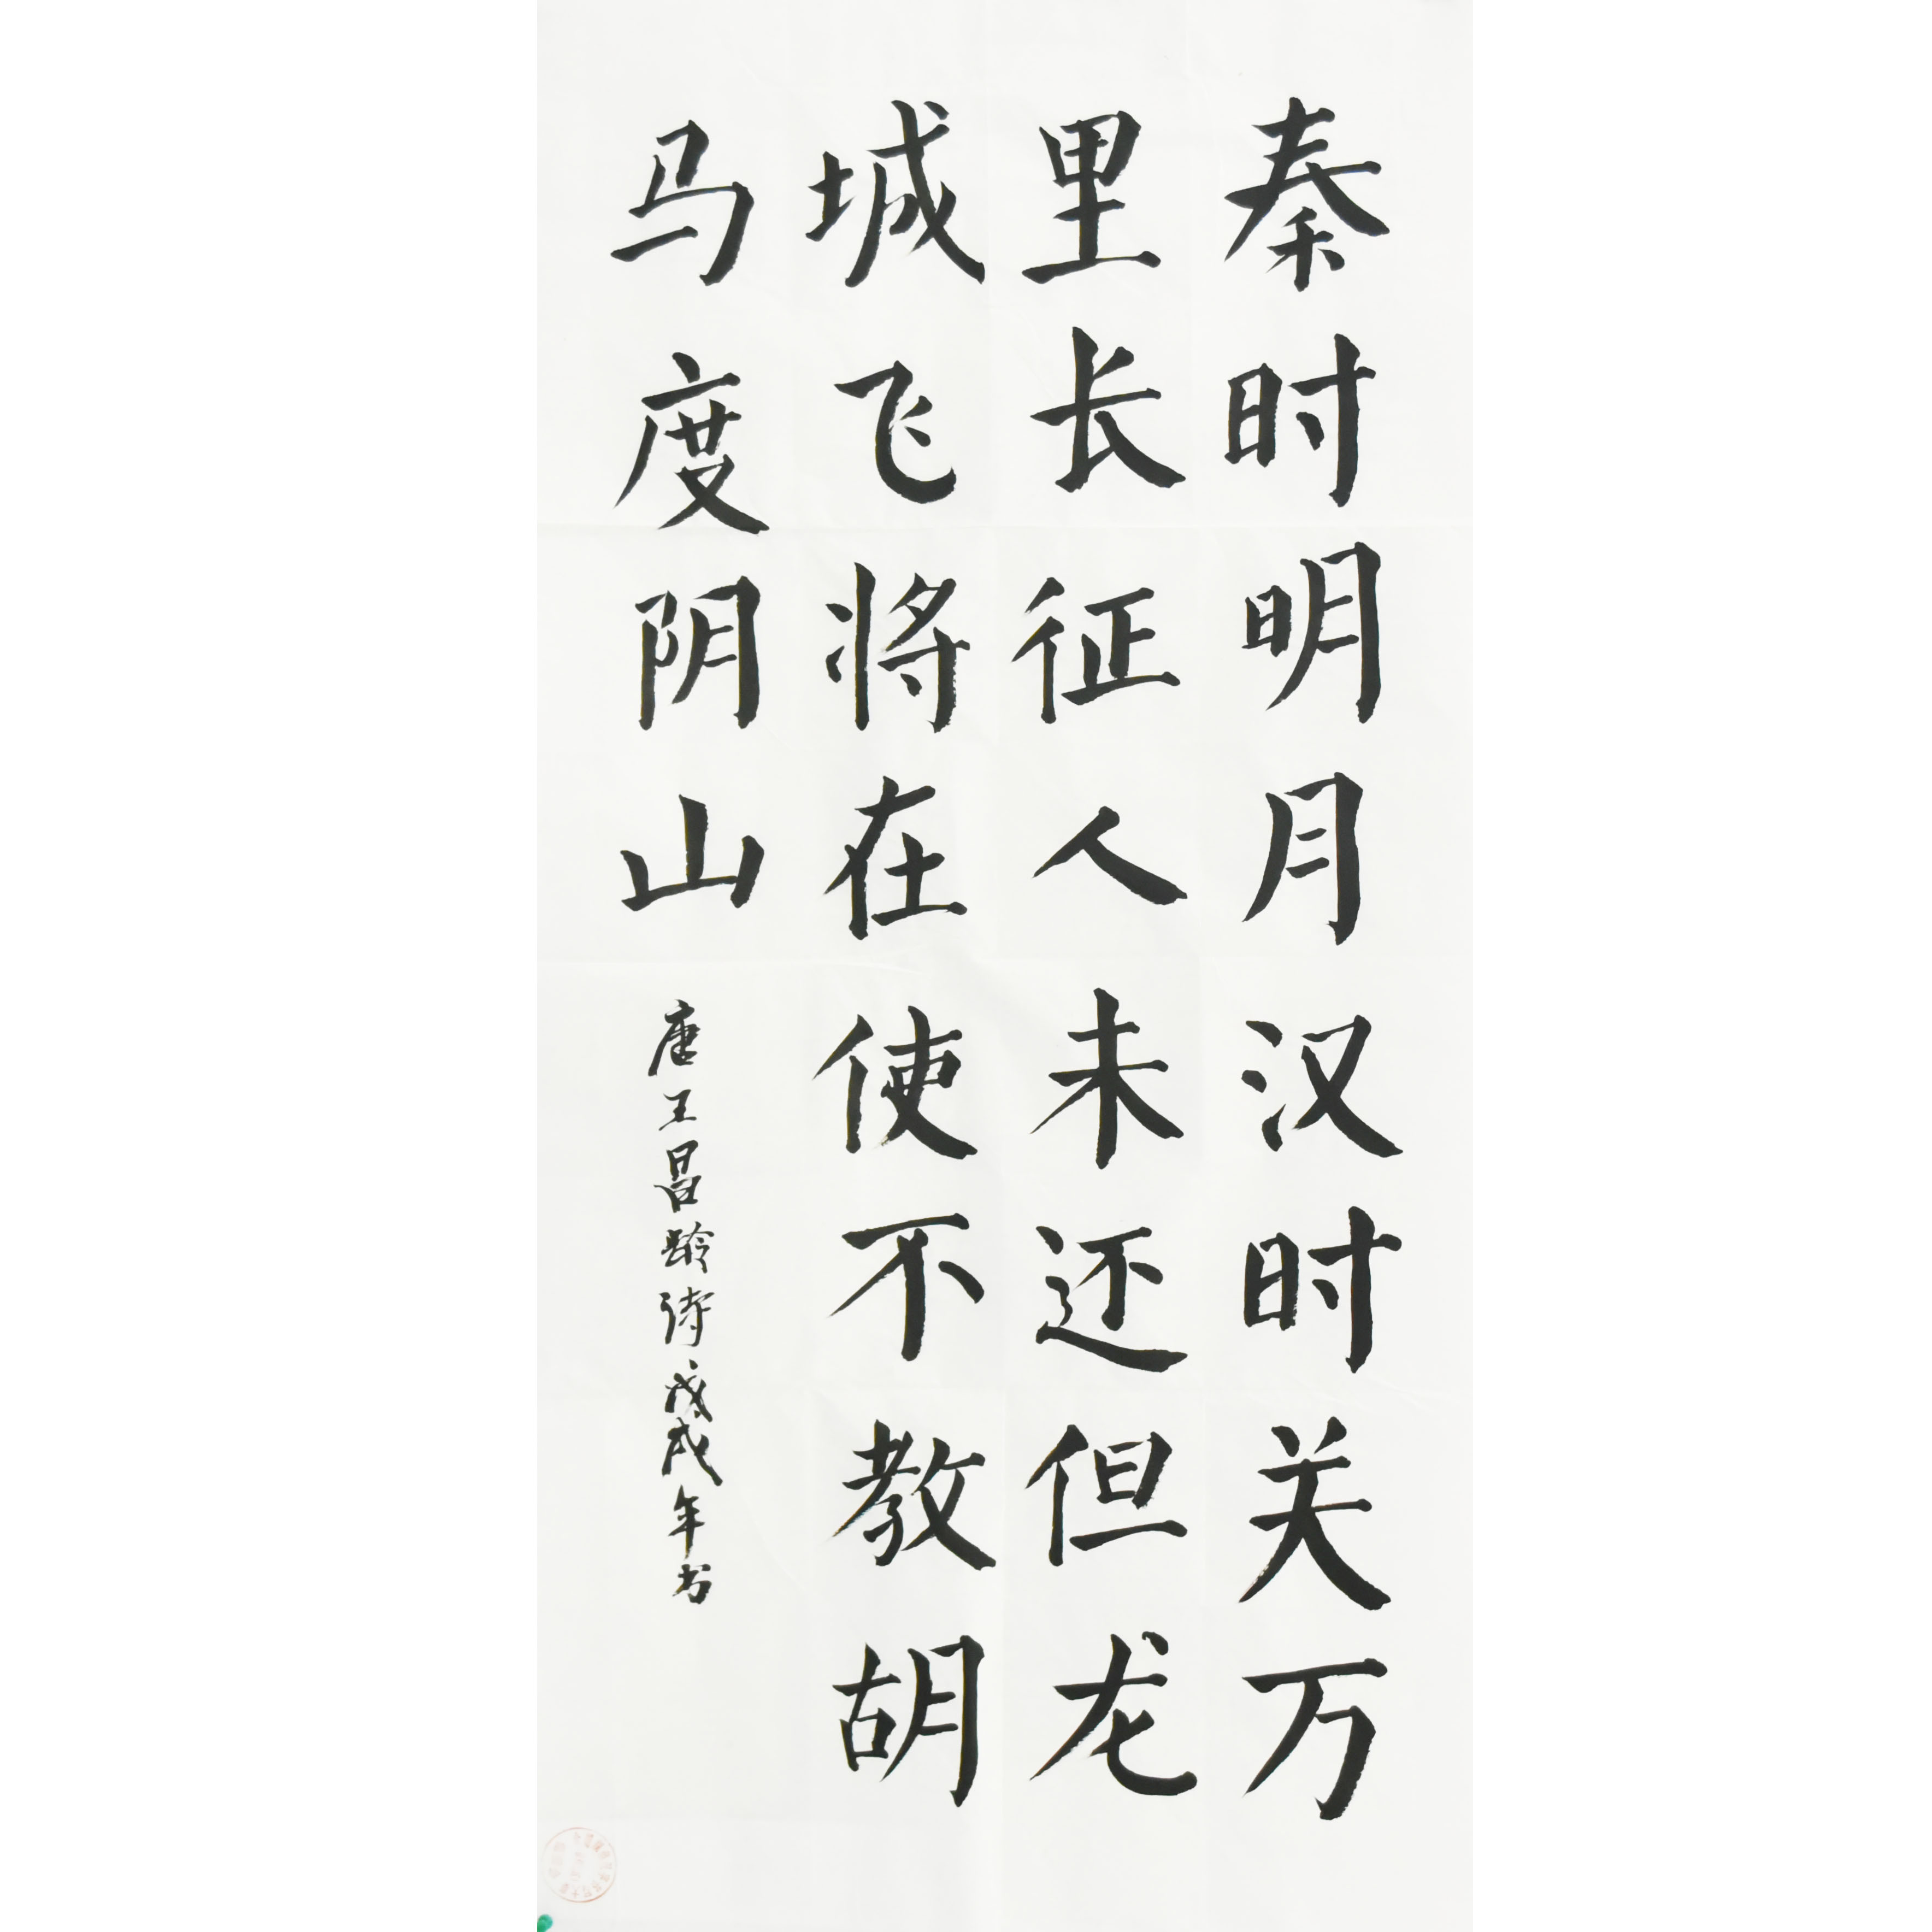 秦时明月汉时关万
里长征人未还但龙
城飞将在使不教胡
马度阴山
唐王昌龄诗戊戌年书